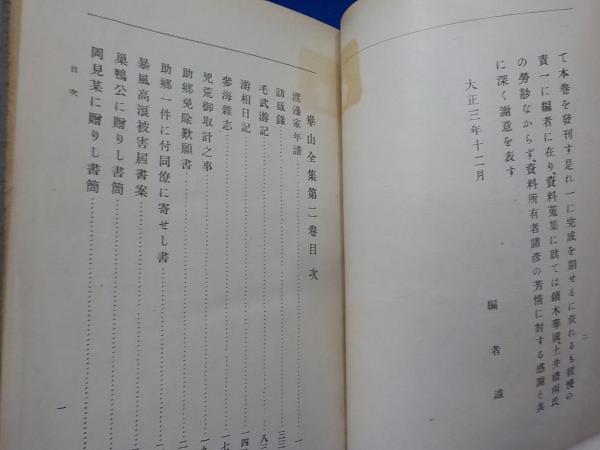 て本巻を發刊す是れ一に完成を期せるに依れるも緩慢の
責一に編者に在り、資料蒐集に就ては鏑木華國、土井禮兩氏
の勞尠なからず、資料所有者諸彦の芳情に對する感謝と共
に深く謝意を表す
大正三年十二月
編者識
二
崋山全集第二卷目次
渡邊家年譜……一
訪瓺錄……三三
毛武游記……八三
游相日記……一四
參海雜志……一七
兇荒御取計之事……一九
助鄕免除歎願書……二
助鄕一件に付同僚に寄せし書
暴風高浪被害屆書案
巢鴨公に贈りし書簡
岡見某に贈りし書簡
目次
一